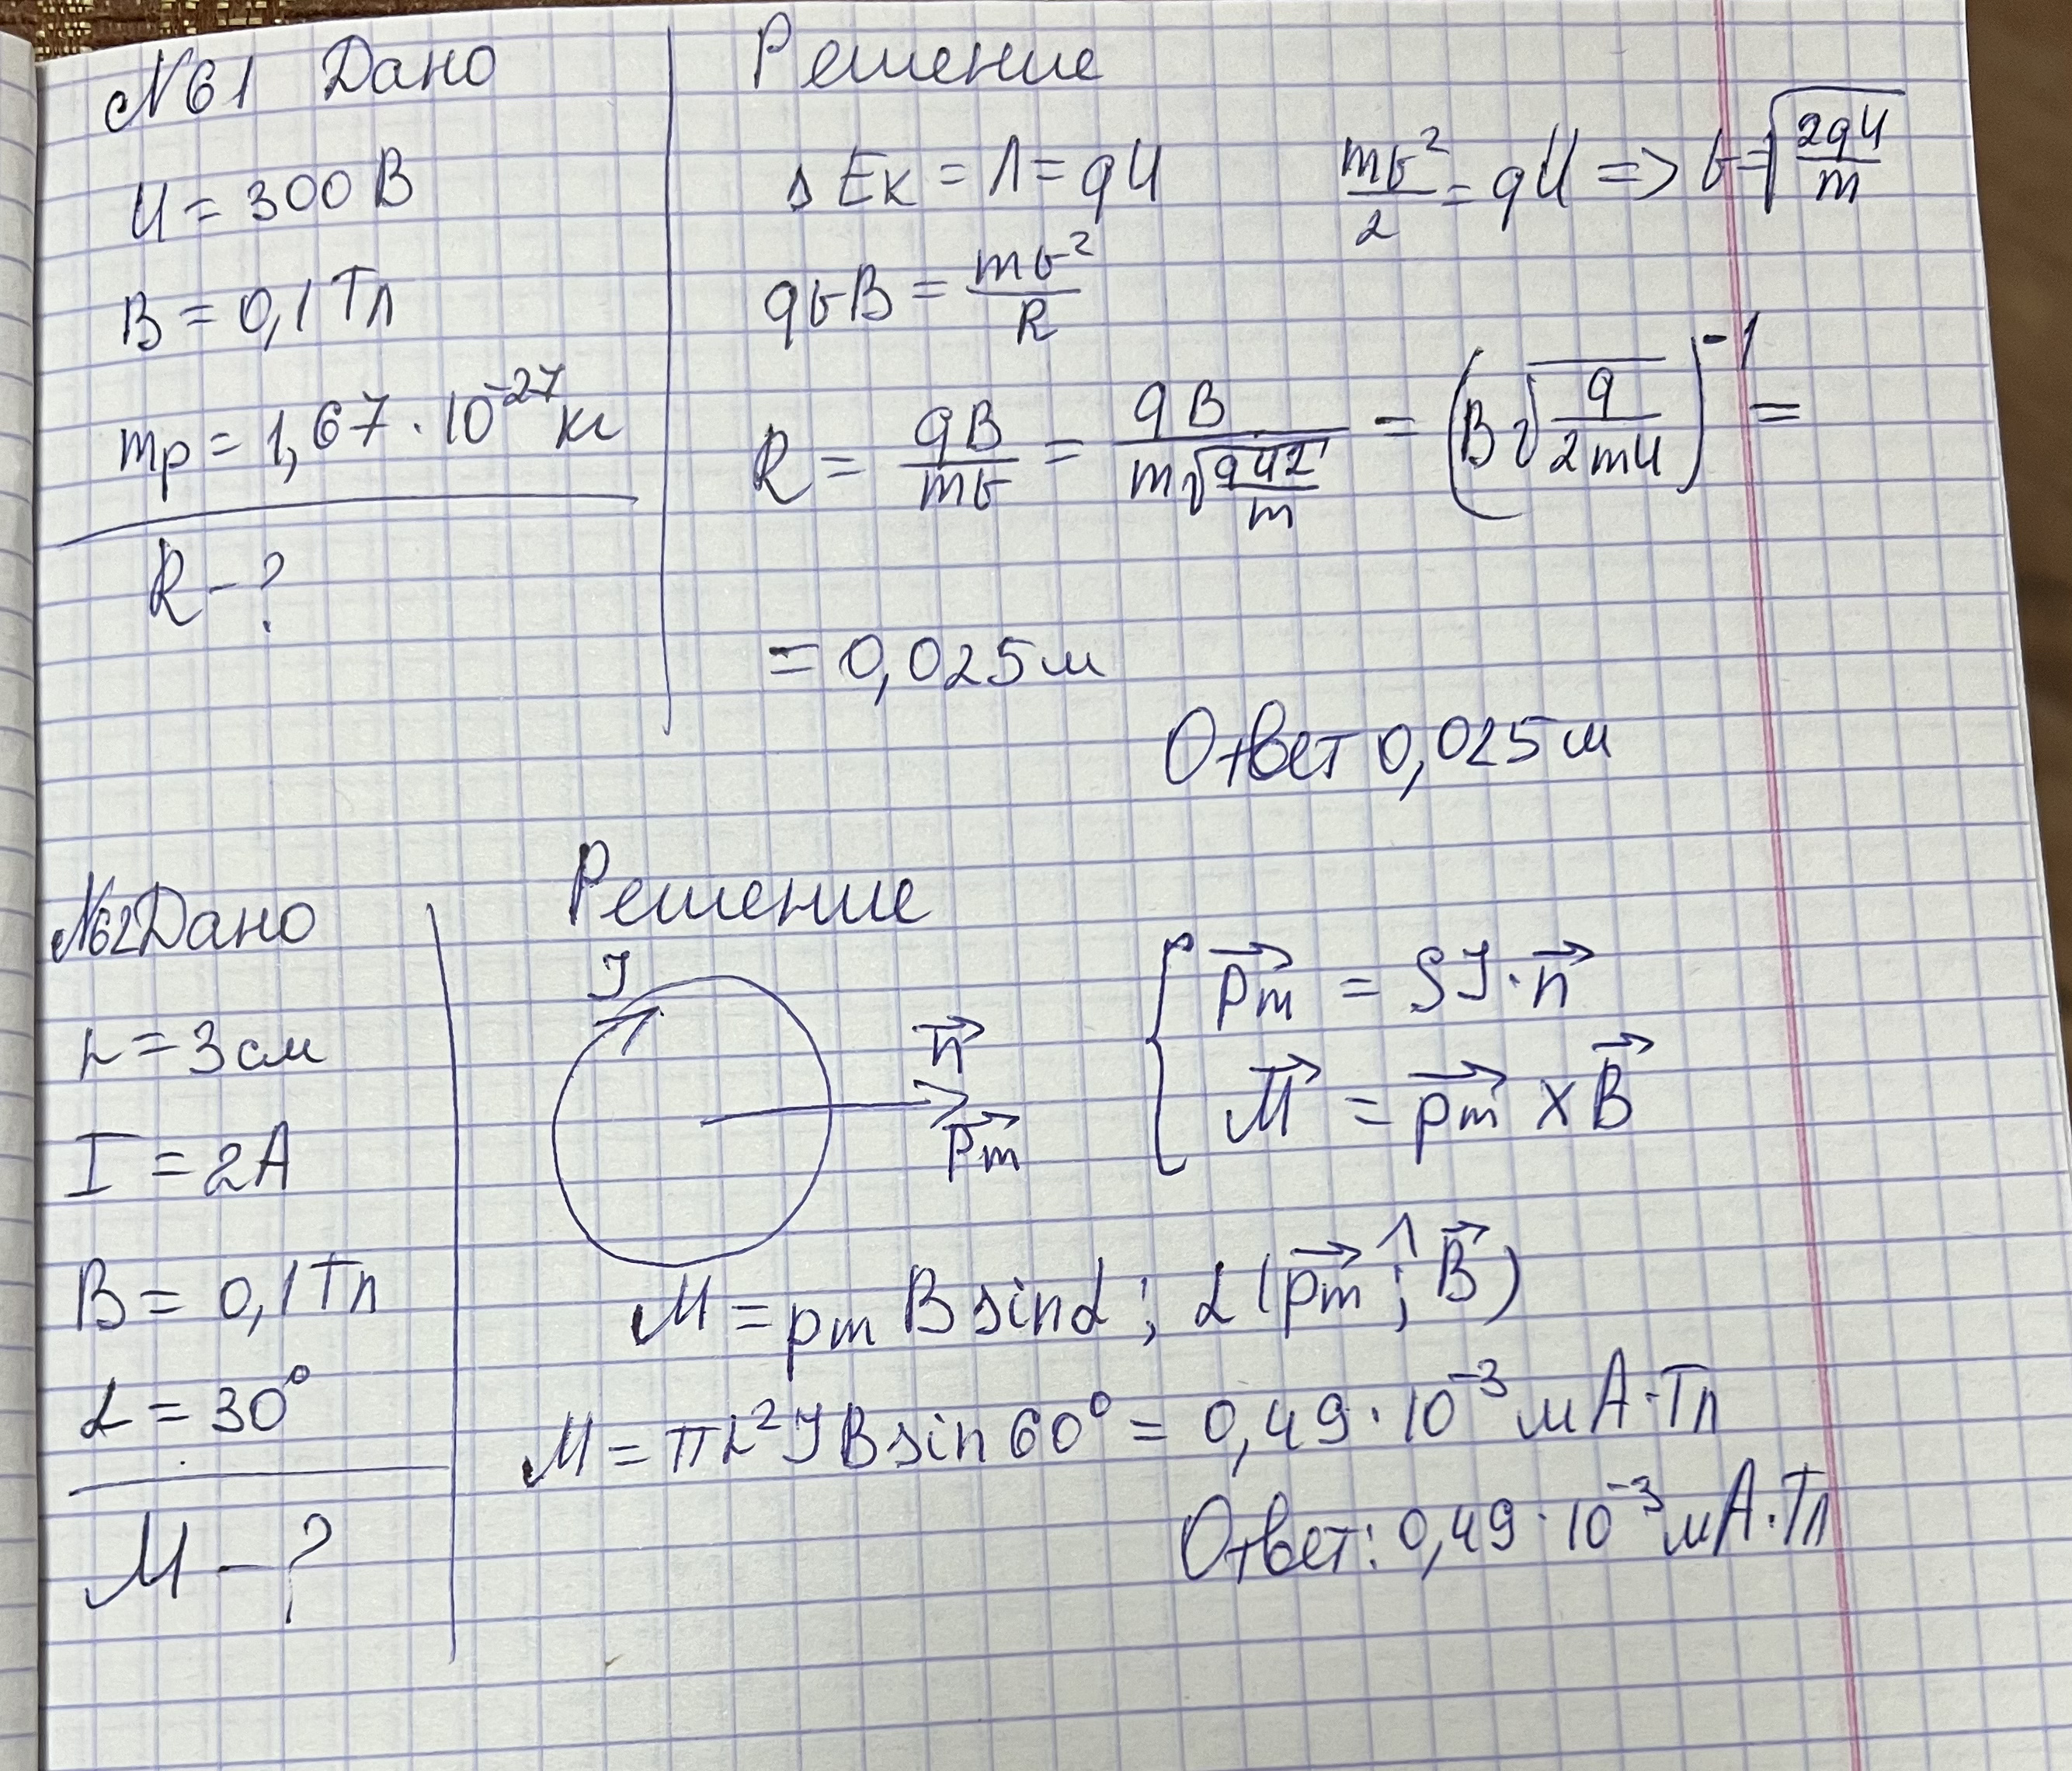 №61 Дано
U = 300 В
B = 0,1 Тл
mp = 1,67 · 10⁻²⁷ кг
R - ?
Решение
ΔEк = A = qU  mv²/2 = qU => v = √(2qU/m)
qvB = mv²/R
R = qB/mv = qB/(m√(qU2/m)) = (B√(q/2mU))⁻¹ =
= 0,025 м
Ответ 0,025 м
№62 Дано
r = 3 см
I = 2 А
B = 0,1 Тл
α = 30°
M - ?
Решение
I
n⃗
p⃗m
{ p⃗m = SI · n⃗
M⃗ = p⃗m × B⃗
M = pm B sinα ; α (p⃗m ^; B⃗)
M = πr²IB sin 60° = 0,49 · 10⁻³ м А · Тл
Ответ: 0,49 · 10⁻³ м А · Тл